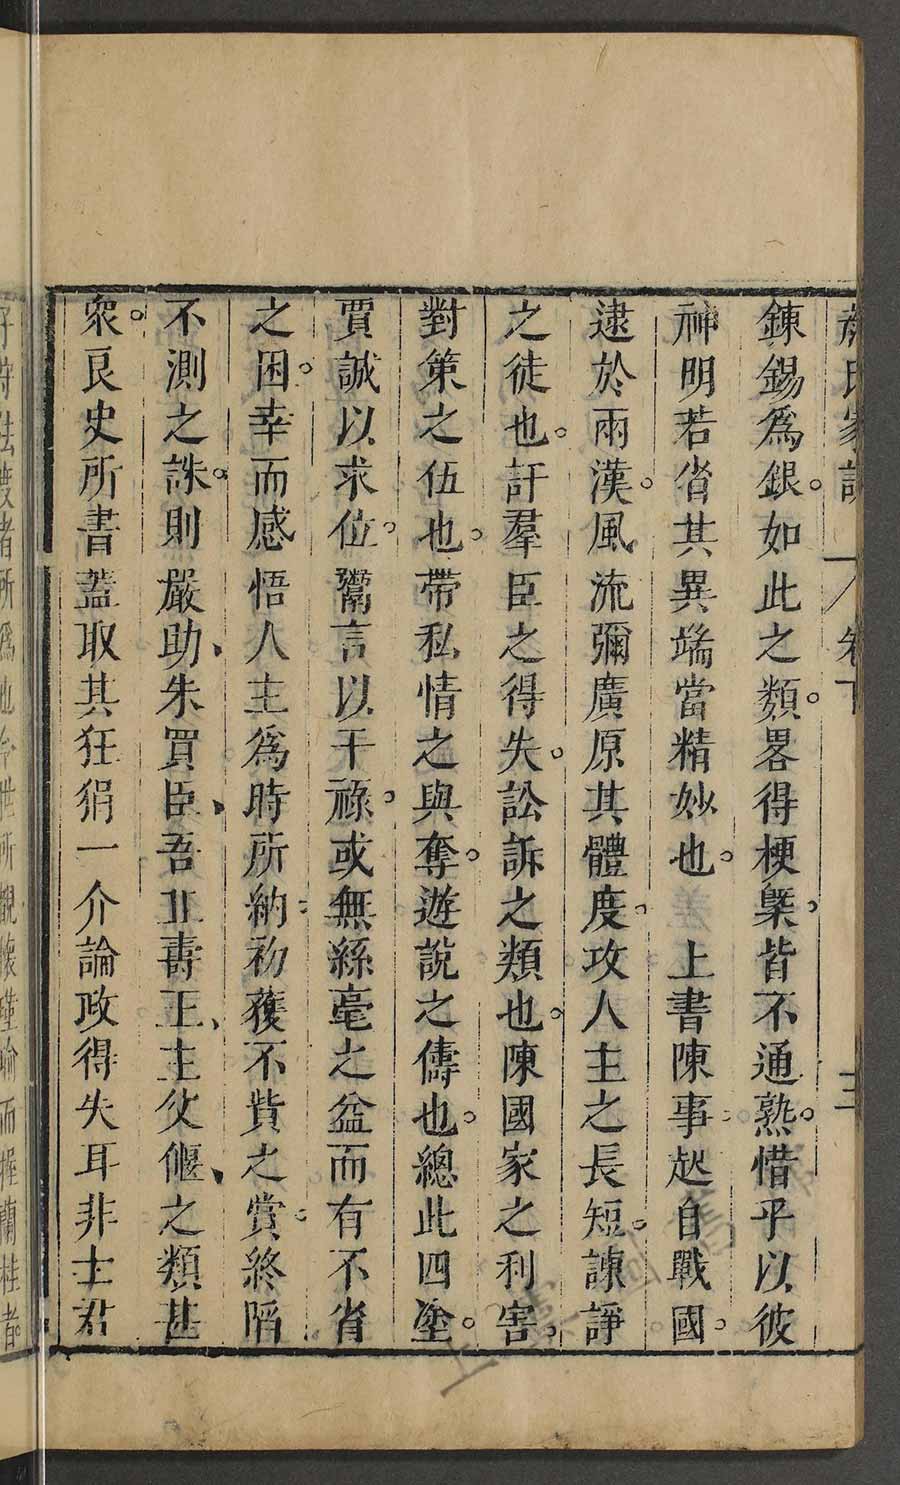 顏氏家訓 卷下 三
鍊錫爲銀。如此之類。畧得梗槩。皆不通熟。惜乎以彼
神明若省其異端當精妙也。 上書陳事。起自戰國。
逮於兩漢。風流彌廣原其體度。攻人主之長短。諫諍
之徒也。訐羣臣之得失。訟訴之類也。陳國家之利害。
對策之伍也。帶私情之與奪。遊說之儔也。總此四塗。
賈誠以求位。鬻言以干祿。或無絲毫之益而有不省
之困。幸而感悟人主爲時所納。初獲不貲之賞。終陷
不測之誅。則嚴助、朱買臣、吾丘壽王、主父偃、之類甚
衆。良史所書蓋取其狂狷一介論政得失耳非士君
子守法度者所爲也今世所覩懷瑾瑜而握蘭桂者